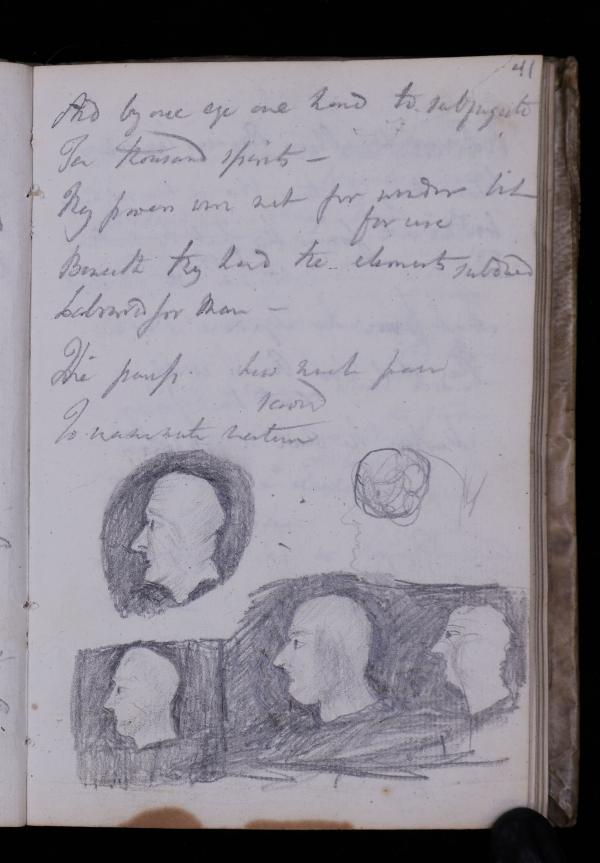 41
And by one eye one hand to subjugate
Ten thousand spirits —
Thy powers were not for wonder but
for use
Beneath thy hand the elements subdued
Labourd for Man —
The pausd. how much
To